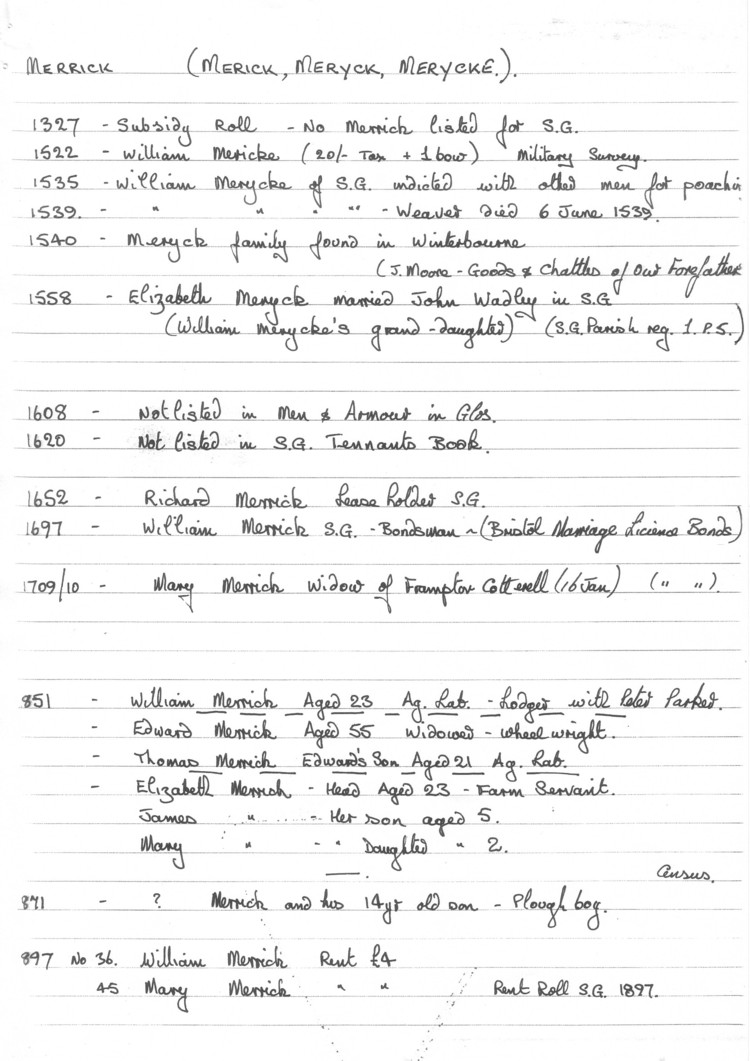 MERRICK (MERICK, MERYCK, MERYCKE.).
1327 - Subsidy Roll - No Merrick listed for S.G.
1522 - William Mericke (20/- Tax + 1 bow) Military Survey.
1535 - William Merycke of S.G. indicted with other men for poachi
1539. - " " " "" - Weaver Died 6 June 1539.
1540 - Meryck family found in Winterbourne
(J. Moore - Goods & Chattles of Our Forefather
1558 - Elizabeth Meryck married John Wadley in S.G
(William Merycke's grand-daughter) (S.G. Parish reg. 1. P.5.)
1608 - Not listed in Men & Armour in Glos.
1620 - Not listed in S.G. Tennants Book.
1652 - Richard Merrick Lease holder S.G.
1697 - William Merrick S.G. - Bondsman ~ (Bristol Marriage Licience Bonds)
1709/10 - Mary Merrick Widow of Frampton Cotterell (16 Jan) (" ").
851 - William Merrick Aged 23 Ag. Lab. - Lodger with Peter Parker.
- Edward Merrick Aged 55 Widower - wheelwright.
- Thomas Merrick Edward's Son Aged 21 Ag. Lab.
- Elizabeth Merrick - Head Aged 23 - Farm Servant.
James " ....... - Her son aged 5.
Mary " - " Daughter " 2.
Census.
871 - ? Merrick and his 14yr old son - Plough boy.
897 No 36. William Merrick Rent £4
45 Mary Merrick " " Rent Roll S.G. 1897.